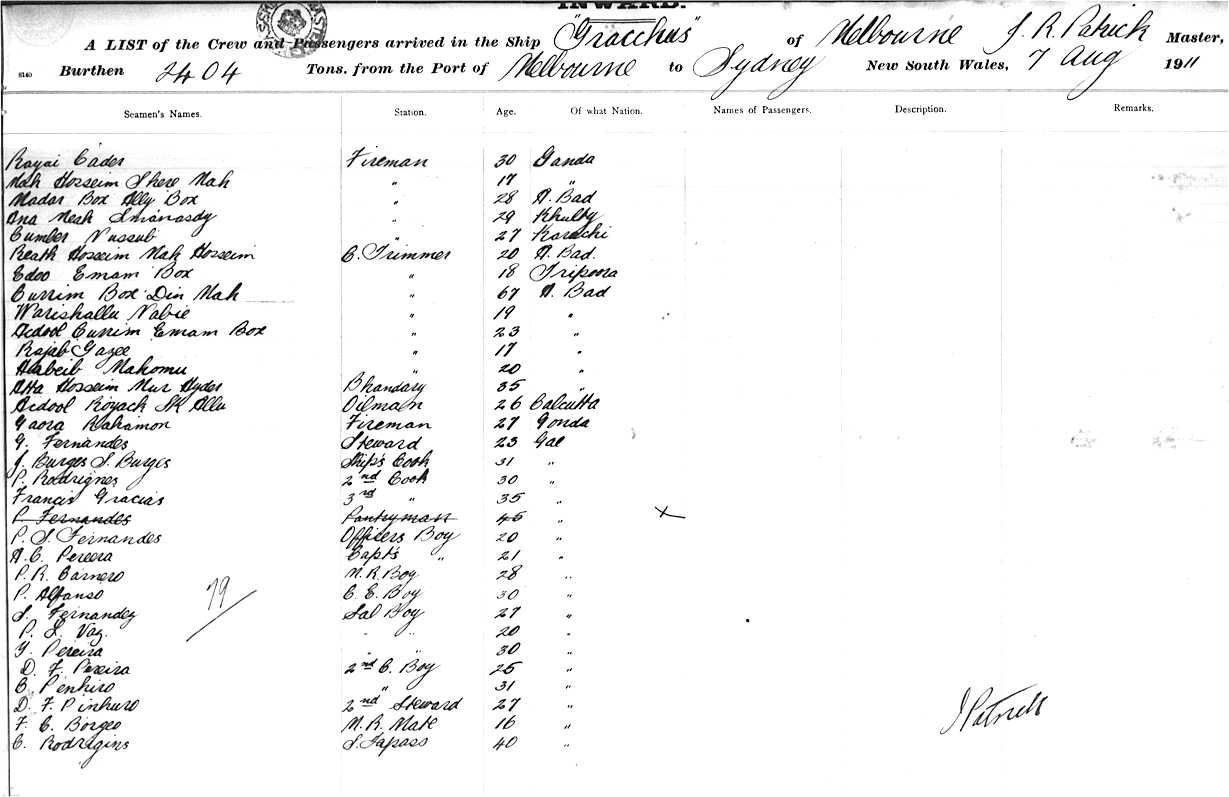 INWARD.
A LIST of the Crew and Passengers arrived in the Ship "Gracchus" of Melbourne J. R. Patrick Master,
8140 Burthen 2404 Tons. from the Port of Melbourne to Sydney New South Wales, 7 Aug 1911
Seamen's Names. Station. Age. Of what Nation. Names of Passengers. Description. Remarks.
Rayai Cader Fireman 30 Ganda
Mah Hosseim Shere Mah " 17 "
Madar Box Ally Box " 28 A. Bad
Ana Meah " 29 Khulty
Cumber Nussub " 27 Karachi
Reath Hosseim Mah Hosseim C. Trimmer 20 A. Bad.
Edoo Emam Box " 18 Tripoora
Currim Box Din Mah " 67 A. Bad
Warishallu Nabie " 19 "
Acdool Currim Emam Box " 23 "
Rajab Gazee " 17 "
Habeib Mahomu " 20 "
Atta Hosseim Mur Hyder Bhandary 35 "
Acdool Royack Sk Allu Oilman 26 Calcutta
Gaora Rahamon Fireman 27 Gonda
G. Fernandes Steward 23 Goa
J. Burges S. Burges Ship's Cook 31 "
P. Rodrignes 2nd Cook 30 "
Francis Gracias 3rd " 35 "
P Fernandes Pantryman 45 " x
P. S. Fernandes Officers Boy 20 "
A. C. Pereera Capt's " 21 "
P. R. Carnero M. R. Boy 28 "
P. Alfanso C. E. Boy 30 "
S. Fernandez Sal Boy 27 "
79
P. S. Vaz. " " 20 "
Y. Pereira " " 30 "
D. F. Pereira 2nd C. Boy 25 "
C. Penhiro " 31 "
D. F. Pinhuro 2nd Steward 27 "
F. C. Borges M. R. Mate 16 "
J Patrick
C. Rodrigins S. Tapass 40 "